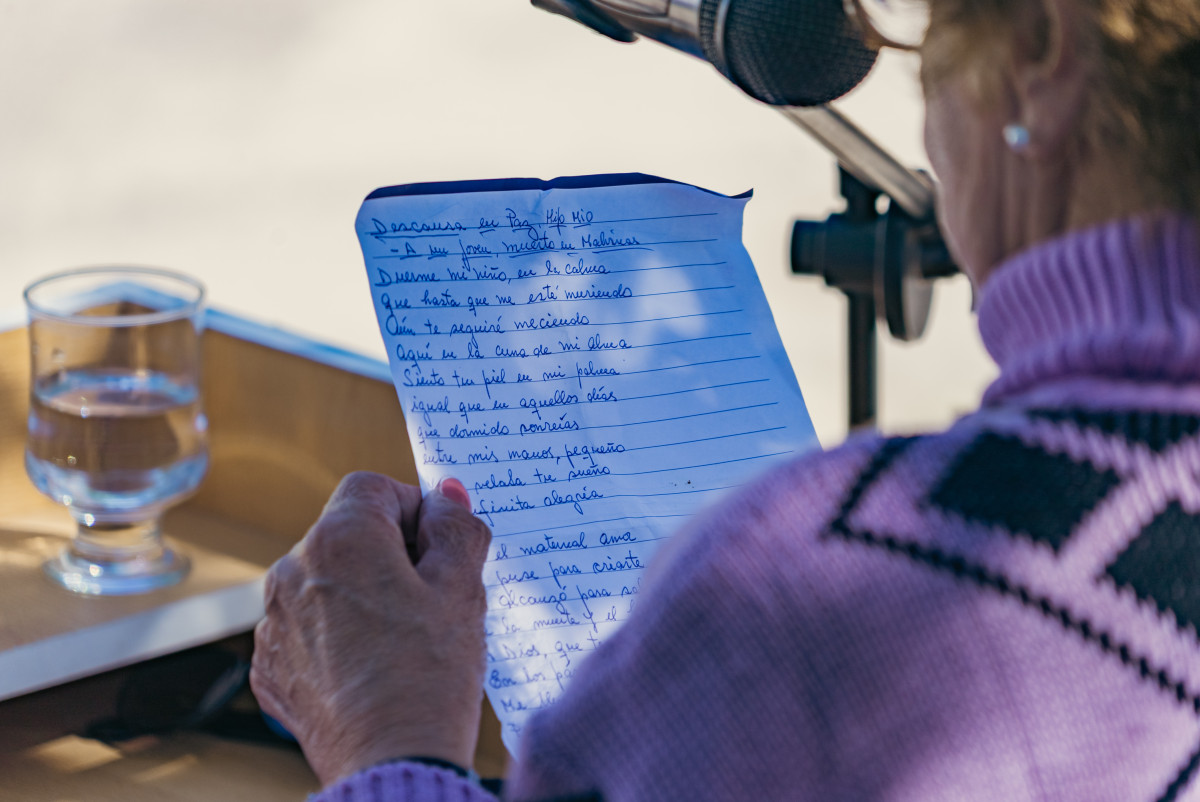 Descansa en Paz Hijo Mio
- A un joven, muerto en Malvinas
Duerme mi niño, en la calma
que hasta que me esté muriendo
Aún te seguiré meciendo
Aquí en la cuna de mi alma
Siento tu piel en mi palma
igual que en aquellos días
que dormido sonreías
entre mis manos, pequeño
velaba tu sueño
infinita alegría
el maternal amor
puse para criarte
alcanzó para
la muerte y el
Dios, que
Con los
Me